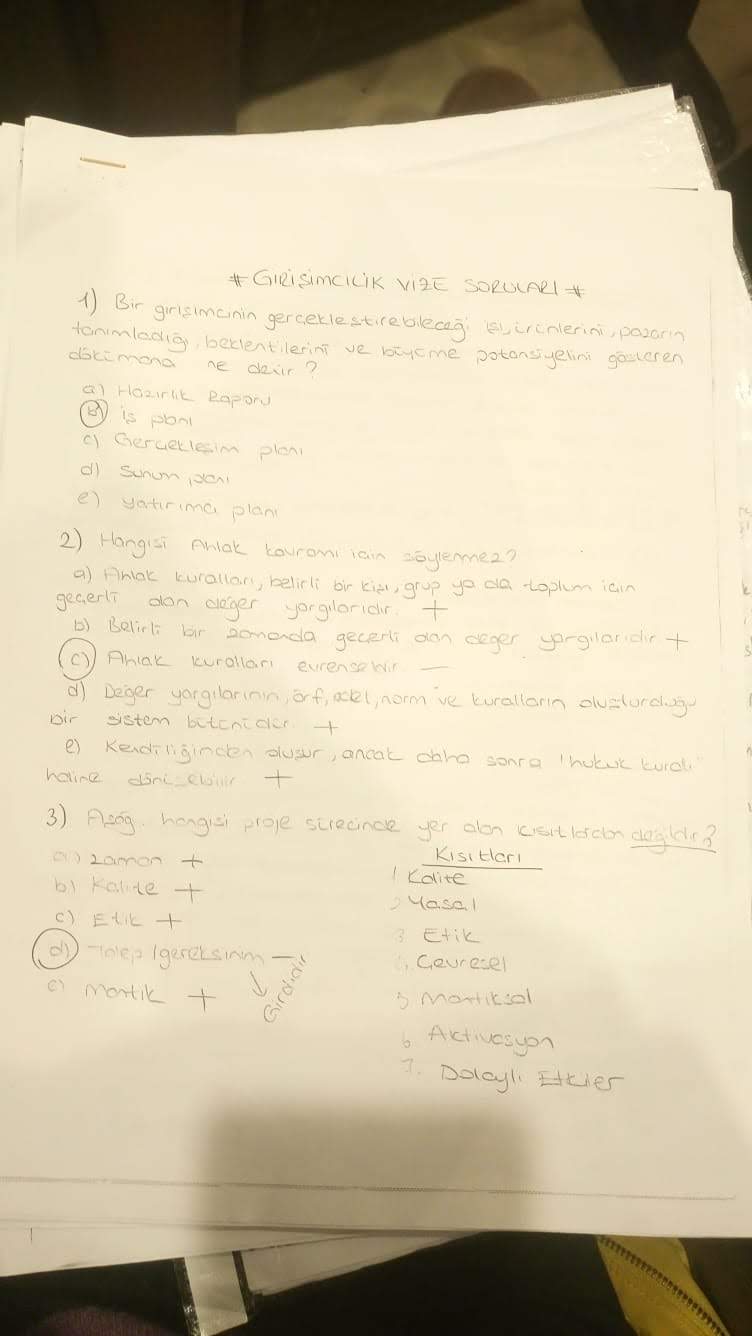 # GİRİŞİMCİLİK VİZE SORULARI #
1) Bir girişimcinin gerçekleştirebileceği işi, ürünlerini, pazarın
tanımladığı, beklentilerini ve büyüme potansiyelini gösteren
dökümana ne denir?
a) Hazırlık Raporu
B) iş planı
c) Gerçekleşim planı
d) Sunum planı
e) yatırımcı planı
2) Hangisi Ahlak kavramı için söylenmez?
a) Ahlak kuralları, belirli bir kişi, grup ya da toplum için
geçerli olan değer yargılarıdır. +
b) Belirli bir zamanda geçerli olan değer yargılarıdır +
c) Ahlak kuralları evrenseldir —
d) Değer yargılarının, örf, adet, norm ve kuralların oluşturduğu
bir sistem bütünüdür. +
e) Kendiliğinden oluşur, ancak daha sonra "hukuk kuralı"
haline dönüşebilir +
3) Aşağ. hangisi proje sürecinde yer alan kısıtlardan değildir?
a) zaman +
b) Kalite +
c) Etik +
d) Talep/gereksinim —
Girdidir
e) Mantık +
Kısıtları
1 Kalite
2 Yasal
3 Etik
4. Çevresel
5 Mantıksal
6 Aktivasyon
7. Dolaylı Etkiler
1